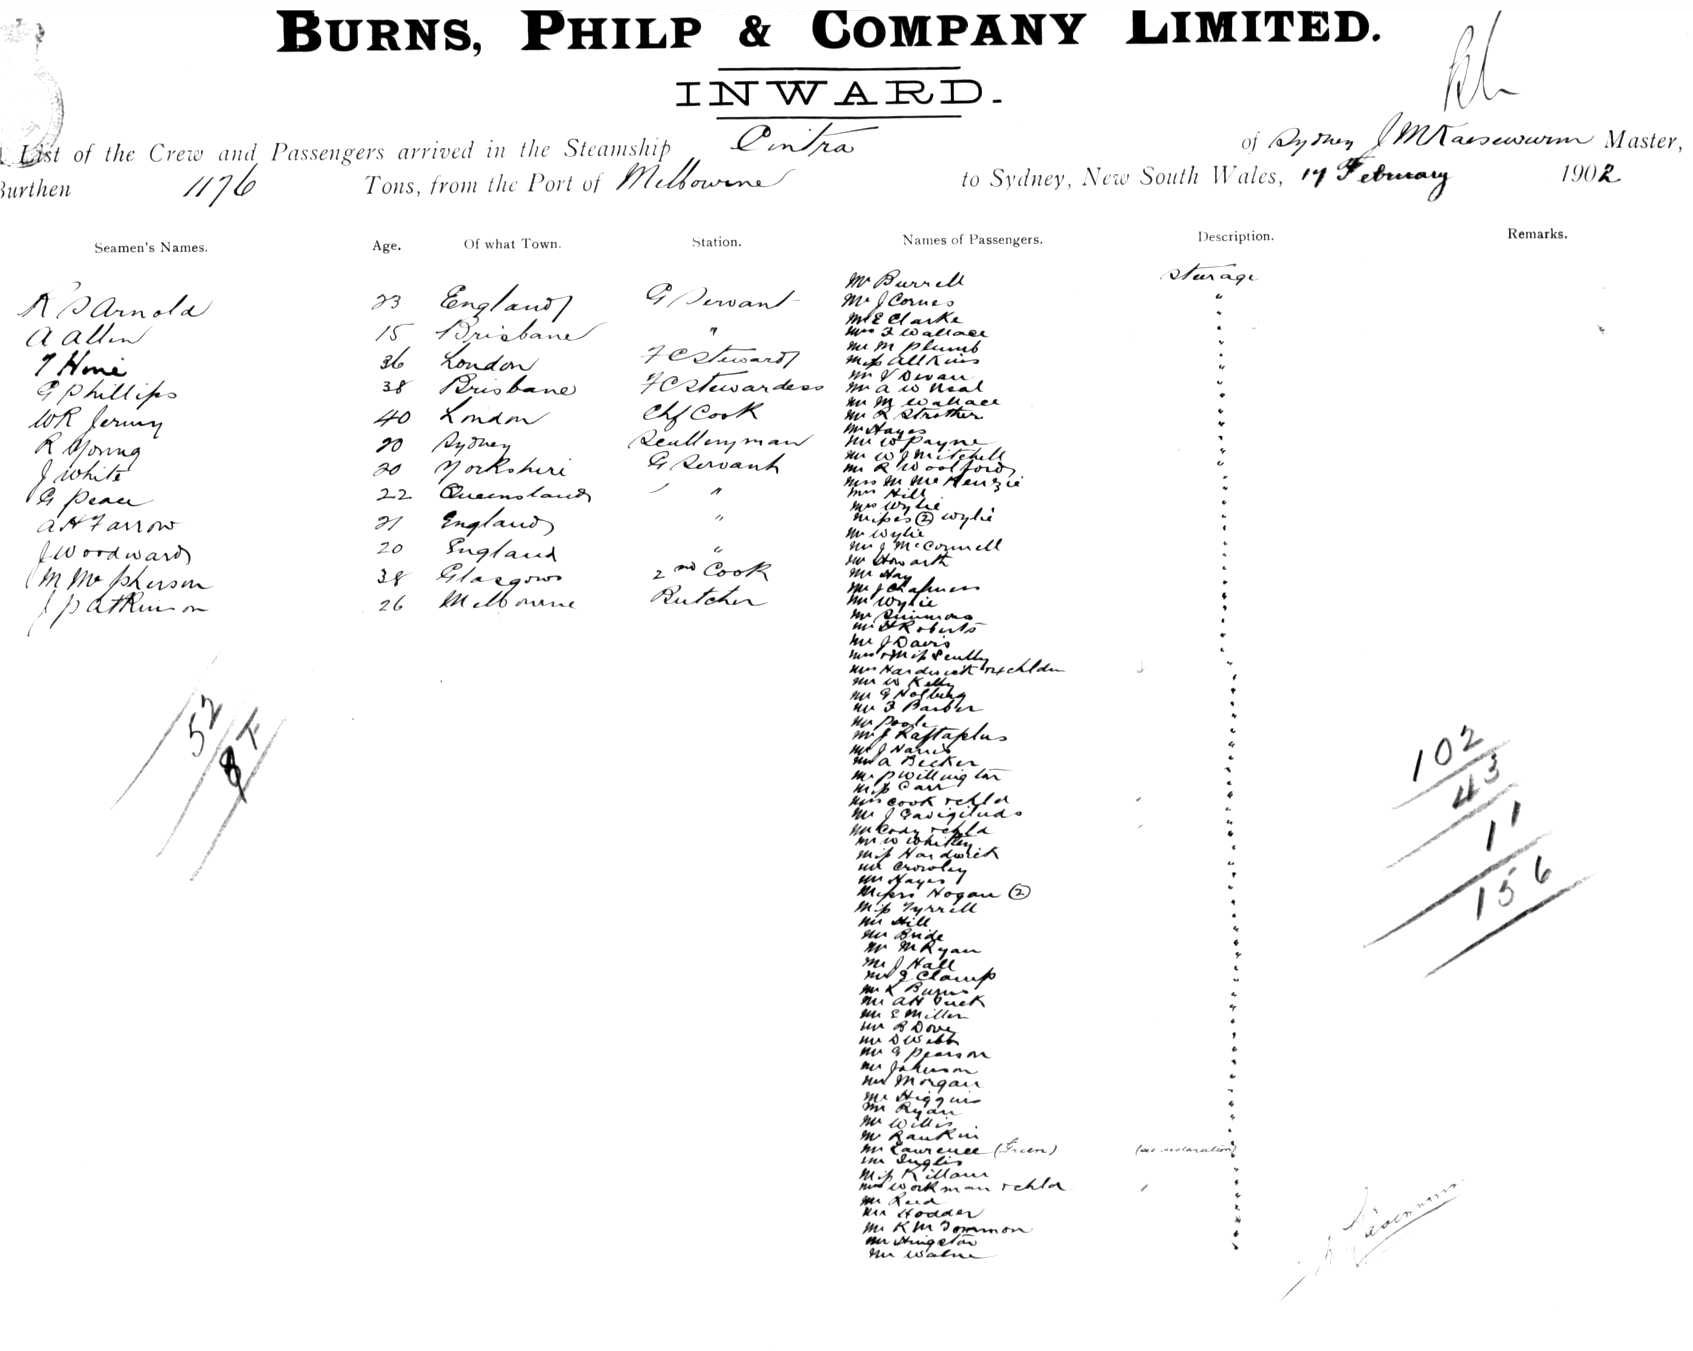 BURNS, PHILP & COMPANY LIMITED.
INWARD.
List of the Crew and Passengers arrived in the Steamship Cintra of Sydney Master,
Burthen 1176 Tons, from the Port of Melbourne to Sydney, New South Wales, 17 February 1902
Seamen's Names. Age. Of what Town. Station. Names of Passengers. Description. Remarks.
Arnold 23 England G Servant
A Allen 15 Brisbane "
36 London F C Steward
G Phillips 38 Brisbane F C Stewardess
W R 40 London Chf Cook
R Young 20 Sydney Sculleryman
J White 20 Yorkshire G Servant
G 22 Queensland "
A H Farrow 21 England "
J Woodward 20 England "
M McPherson 38 Glasgow 2nd Cook
J P Atkinson 26 Melbourne Butcher
52
Mr Burrell Sturage
Mr J Cornes "
Mr E Clarke "
Mrs F Wallace "
Mr M Plumb "
Miss Allkins "
Mr Devan "
Mr A W Neal "
Mr M Wallace "
Mr R Strother "
Mr Hayes "
Mr W Payne "
Mr W J Mitchell "
Mr R Woolford "
Mrs M McKenzie "
Mrs Hill "
Mrs Wylie "
Misses (2) Wylie "
Mr Wylie "
Mr J McConnell "
Mr Howarth "
Mr Hay "
Mr J Chapman "
Mr Wylie "
Mr Simmons "
Mr H Roberts "
Mr J Davis "
Mrs & Miss Scully "
Mrs Hardwick chldn "
Mr W Kelly "
Mr G "
Mr F Barber "
Mr Poole "
Mr J "
Mr J Harris "
Mr A Becker "
Mr P Willington "
Miss Carr "
Mrs Cook & chld "
Mr J "
Mr Cody & chld "
Mr W Whitley "
Miss Hardwick "
Mr Crowley "
Mr Hayes "
Misses Hogan (2) "
Miss Tyrrell "
Mr Hill "
Mr Bride "
Mr M Ryan "
Mr J Hall "
Mr J Clamp "
Mr K Burns "
Mr A H Tuck "
Mr E Miller "
Mr B Dove "
Mr D Webb "
Mr G Pearson "
Mr Johnson "
Mr Morgan "
Mr Higgins "
Mr Ryan "
Mr Willis "
Mr Rankin "
Mr Lawrence "
Mr Inglis "
Miss Killam "
Mrs Workman & chld "
Mr Reed "
Mr Hodder "
Mr K M "
Mr Kingston "
Mr "
102
43
11
156